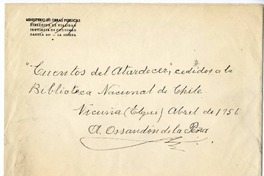 MINISTERIO DE OBRAS PUBLICAS
DIRECCION DE VIALIDAD
"Cuentos del Atardecer", cedidos a la
Biblioteca Nacional de Chile
Vicuña (Elqui) Abril de 1956
A. Ossandon de la Peña